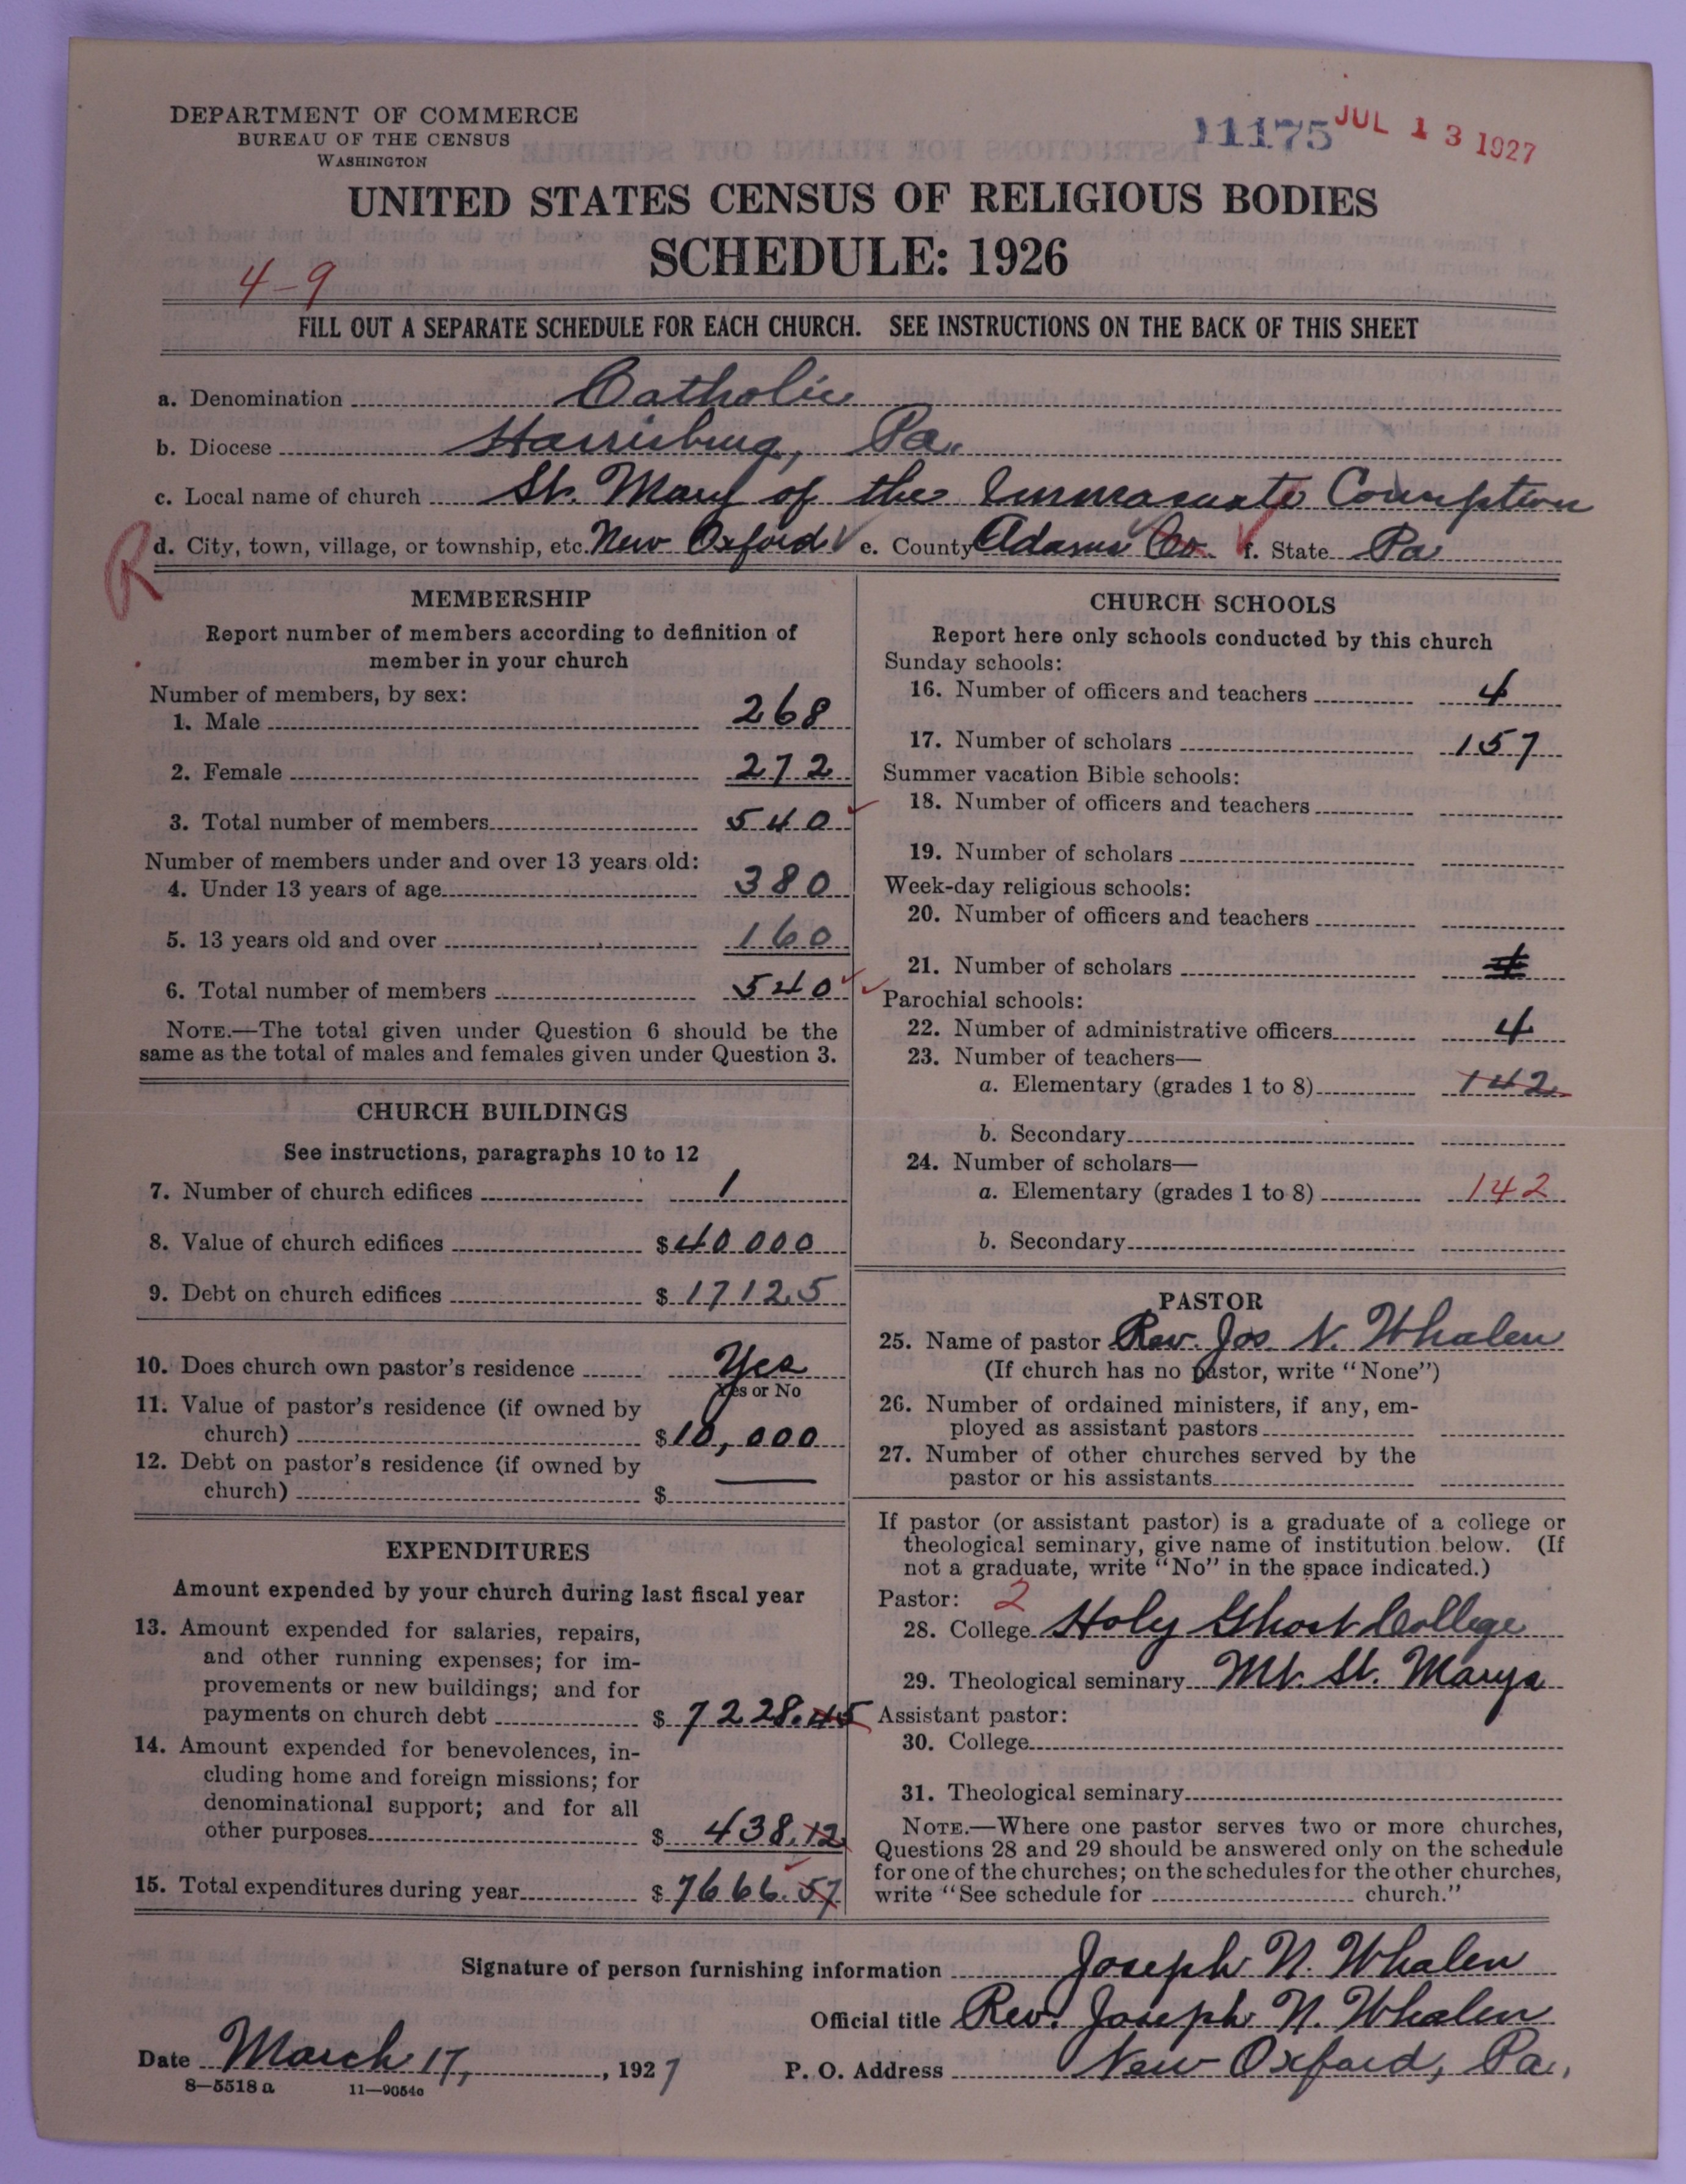 DEPARTMENT OF COMMERCE
BUREAU OF THE CENSUS
WASHINGTON
11175 JUL 13 1927
UNITED STATES CENSUS OF RELIGIOUS BODIES
SCHEDULE: 1926
4-9
FILL OUT A SEPARATE SCHEDULE FOR EACH CHURCH. SEE INSTRUCTIONS ON THE BACK OF THIS SHEET
a. Denomination Catholic
b. Diocese Harrisburg, Pa.
c. Local name of church St. Mary of the Immaculate Conception
R d. City, town, village, or township, etc. New Oxford e. County Adams Co. f. State Pa
MEMBERSHIP
Report number of members according to definition of
member in your church
Number of members, by sex:
1. Male 268
2. Female 272
3. Total number of members 540
Number of members under and over 13 years old:
4. Under 13 years of age 380
5. 13 years old and over 160
6. Total number of members 540
NOTE.—The total given under Question 6 should be the
same as the total of males and females given under Question 3.
CHURCH BUILDINGS
See instructions, paragraphs 10 to 12
7. Number of church edifices 1
8. Value of church edifices $40000
9. Debt on church edifices $17125
10. Does church own pastor's residence Yes
Yes or No
11. Value of pastor's residence (if owned by
church) $10,000
12. Debt on pastor's residence (if owned by
church) $ —
EXPENDITURES
Amount expended by your church during last fiscal year
13. Amount expended for salaries, repairs,
and other running expenses; for im-
provements or new buildings; and for
payments on church debt $7228.45
14. Amount expended for benevolences, in-
cluding home and foreign missions; for
denominational support; and for all
other purposes $438.12
15. Total expenditures during year $7666.57
CHURCH SCHOOLS
Report here only schools conducted by this church
Sunday schools:
16. Number of officers and teachers 4
17. Number of scholars 157
Summer vacation Bible schools:
18. Number of officers and teachers
19. Number of scholars
Week-day religious schools:
20. Number of officers and teachers
21. Number of scholars
Parochial schools:
22. Number of administrative officers 4
23. Number of teachers—
a. Elementary (grades 1 to 8) 142
b. Secondary
24. Number of scholars—
a. Elementary (grades 1 to 8) 142
b. Secondary
PASTOR
25. Name of pastor Rev. Jos. N. Whalen
(If church has no pastor, write "None")
26. Number of ordained ministers, if any, em-
ployed as assistant pastors
27. Number of other churches served by the
pastor or his assistants
If pastor (or assistant pastor) is a graduate of a college or
theological seminary, give name of institution below. (If
not a graduate, write "No" in the space indicated.)
Pastor: 2
28. College Holy Ghost College
29. Theological seminary Mt. St. Marys
Assistant pastor:
30. College
31. Theological seminary
NOTE.—Where one pastor serves two or more churches,
Questions 28 and 29 should be answered only on the schedule
for one of the churches; on the schedules for the other churches,
write "See schedule for church."
Signature of person furnishing information Joseph N. Whalen
Official title Rev. Joseph N. Whalen
Date March 17, 1927 P. O. Address New Oxford, Pa.,
8—5518 a 11—9054c